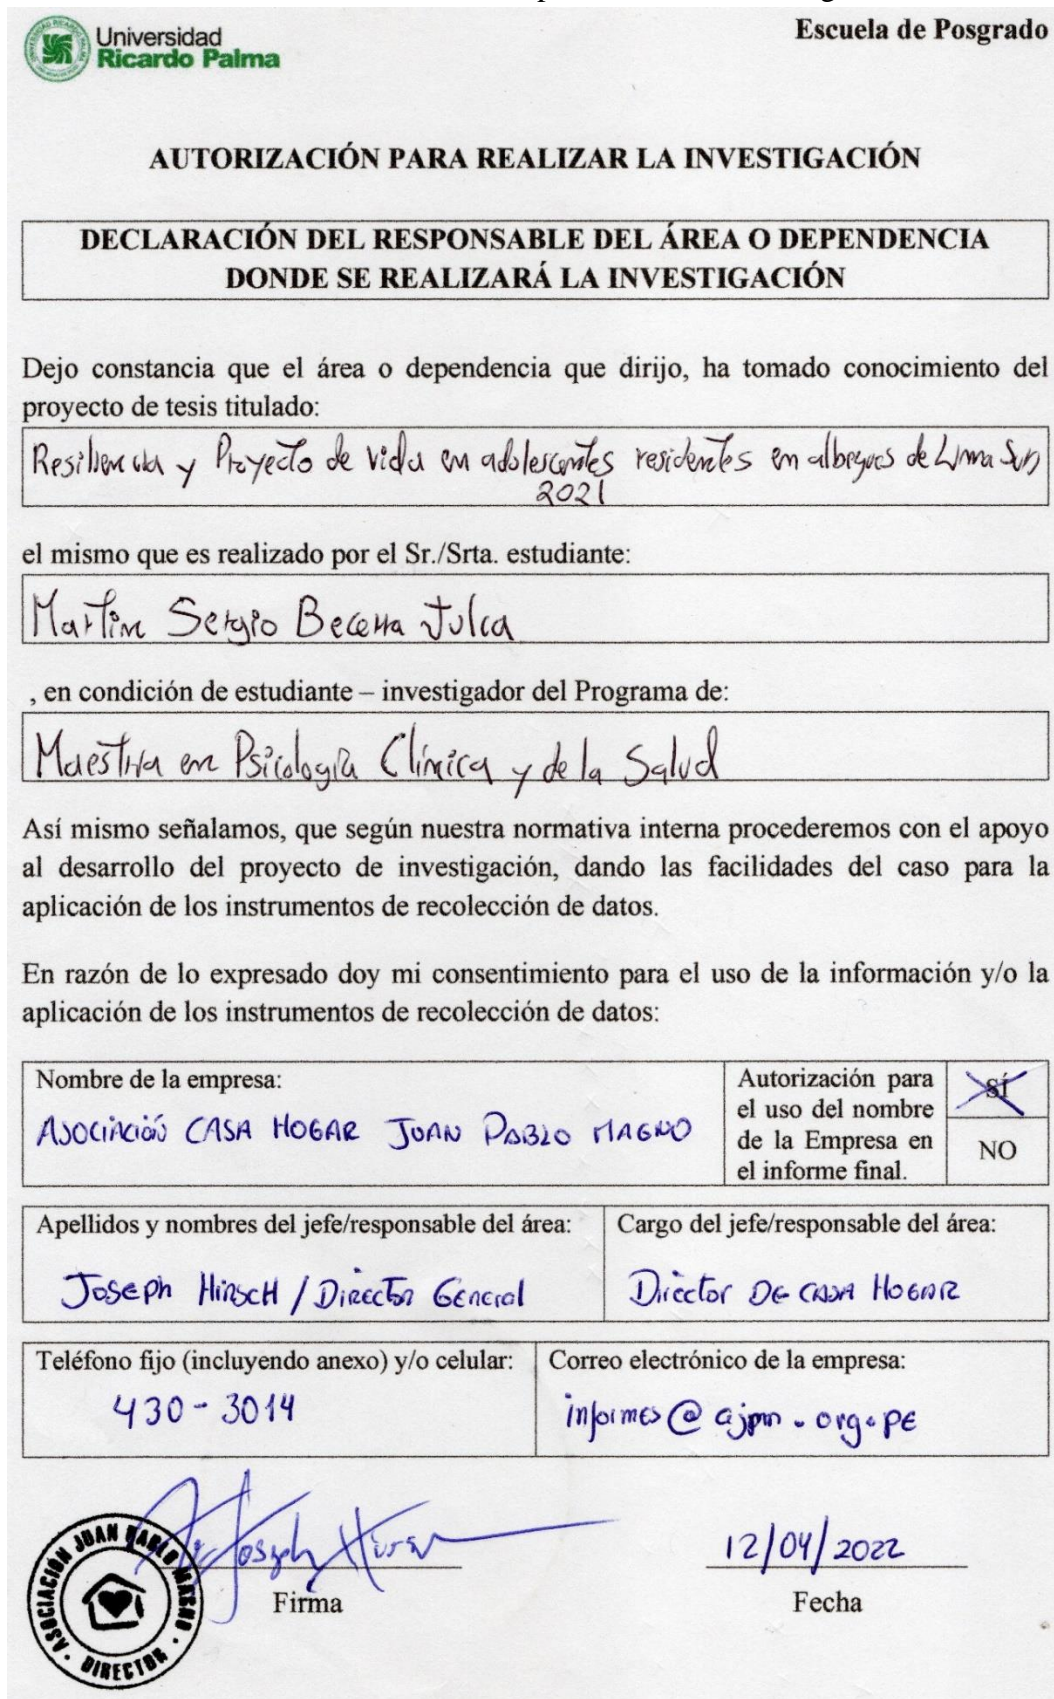 Universidad
Ricardo Palma
Escuela de Posgrado
AUTORIZACIÓN PARA REALIZAR LA INVESTIGACIÓN
DECLARACIÓN DEL RESPONSABLE DEL ÁREA O DEPENDENCIA
DONDE SE REALIZARÁ LA INVESTIGACIÓN
Dejo constancia que el área o dependencia que dirijo, ha tomado conocimiento del
proyecto de tesis titulado:
Resiliencia y Proyecto de vida en adolescentes residentes en albegues de Lima Sur
2021
el mismo que es realizado por el Sr./Srta. estudiante:
Martin Sergio Becerra Julca
, en condición de estudiante – investigador del Programa de:
Maestria en Psicología Clínica y de la Salud
Así mismo señalamos, que según nuestra normativa interna procederemos con el apoyo
al desarrollo del proyecto de investigación, dando las facilidades del caso para la
aplicación de los instrumentos de recolección de datos.
En razón de lo expresado doy mi consentimiento para el uso de la información y/o la
aplicación de los instrumentos de recolección de datos:
Nombre de la empresa:
ASOCIACIÓN CASA HOGAR JUAN PABLO MAGNO
Autorización para
el uso del nombre
de la Empresa en
el informe final.
SÍ
NO
Apellidos y nombres del jefe/responsable del área:
Joseph Hirsch / Director General
Cargo del jefe/responsable del área:
Director DE CASA HOGAR
Teléfono fijo (incluyendo anexo) y/o celular:
430-3014
Correo electrónico de la empresa:
informes@ajpm.org.pe
ASOCIACIÓN JUAN PABLO MAGNO
DIRECTOR
Firma
12/04/2022
Fecha